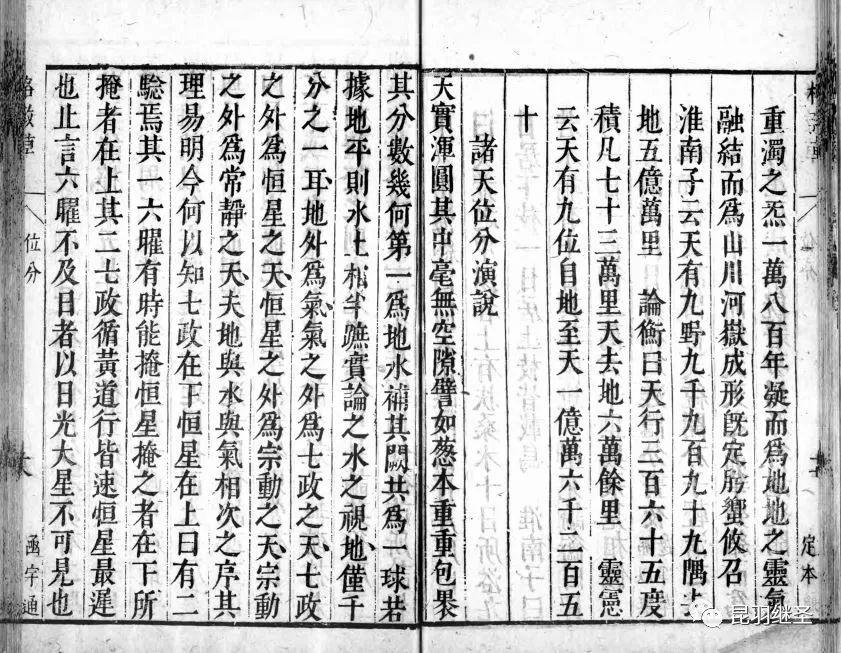 重濁之炁一萬八百年凝而爲地地之靈氣
融結而爲山川河嶽成形既定肹蠁攸召
淮南子云天有九野九千九百九十九隅去
地五億萬里 論衡曰天行三百六十五度
積凡七十三萬里天去地六萬餘里 靈憲
云天有九位自地至天一億萬六千二百五
十
諸天位分演說
天實渾圓其中毫無空隙譬如葱本重重包裹
其分數幾何第一爲地水補其闕共爲一球若
據地平則水土相半蹠實論之水之視地僅千
分之一耳地外爲氣氣之外爲七政之天七政
之外爲恒星之天恒星之外爲宗動之天宗動
之外爲常靜之天夫地與水與氣相次之序其
理易明今何以知七政在下恒星在上曰有二
騐焉其一六曜有時能掩恒星掩之者在下所
掩者在上其二七政循黃道行皆速恒星最遲
也止言六曜不及日者以日光大星不可見也
位分
定本
格致草
位分
函宇通
昆羽继圣